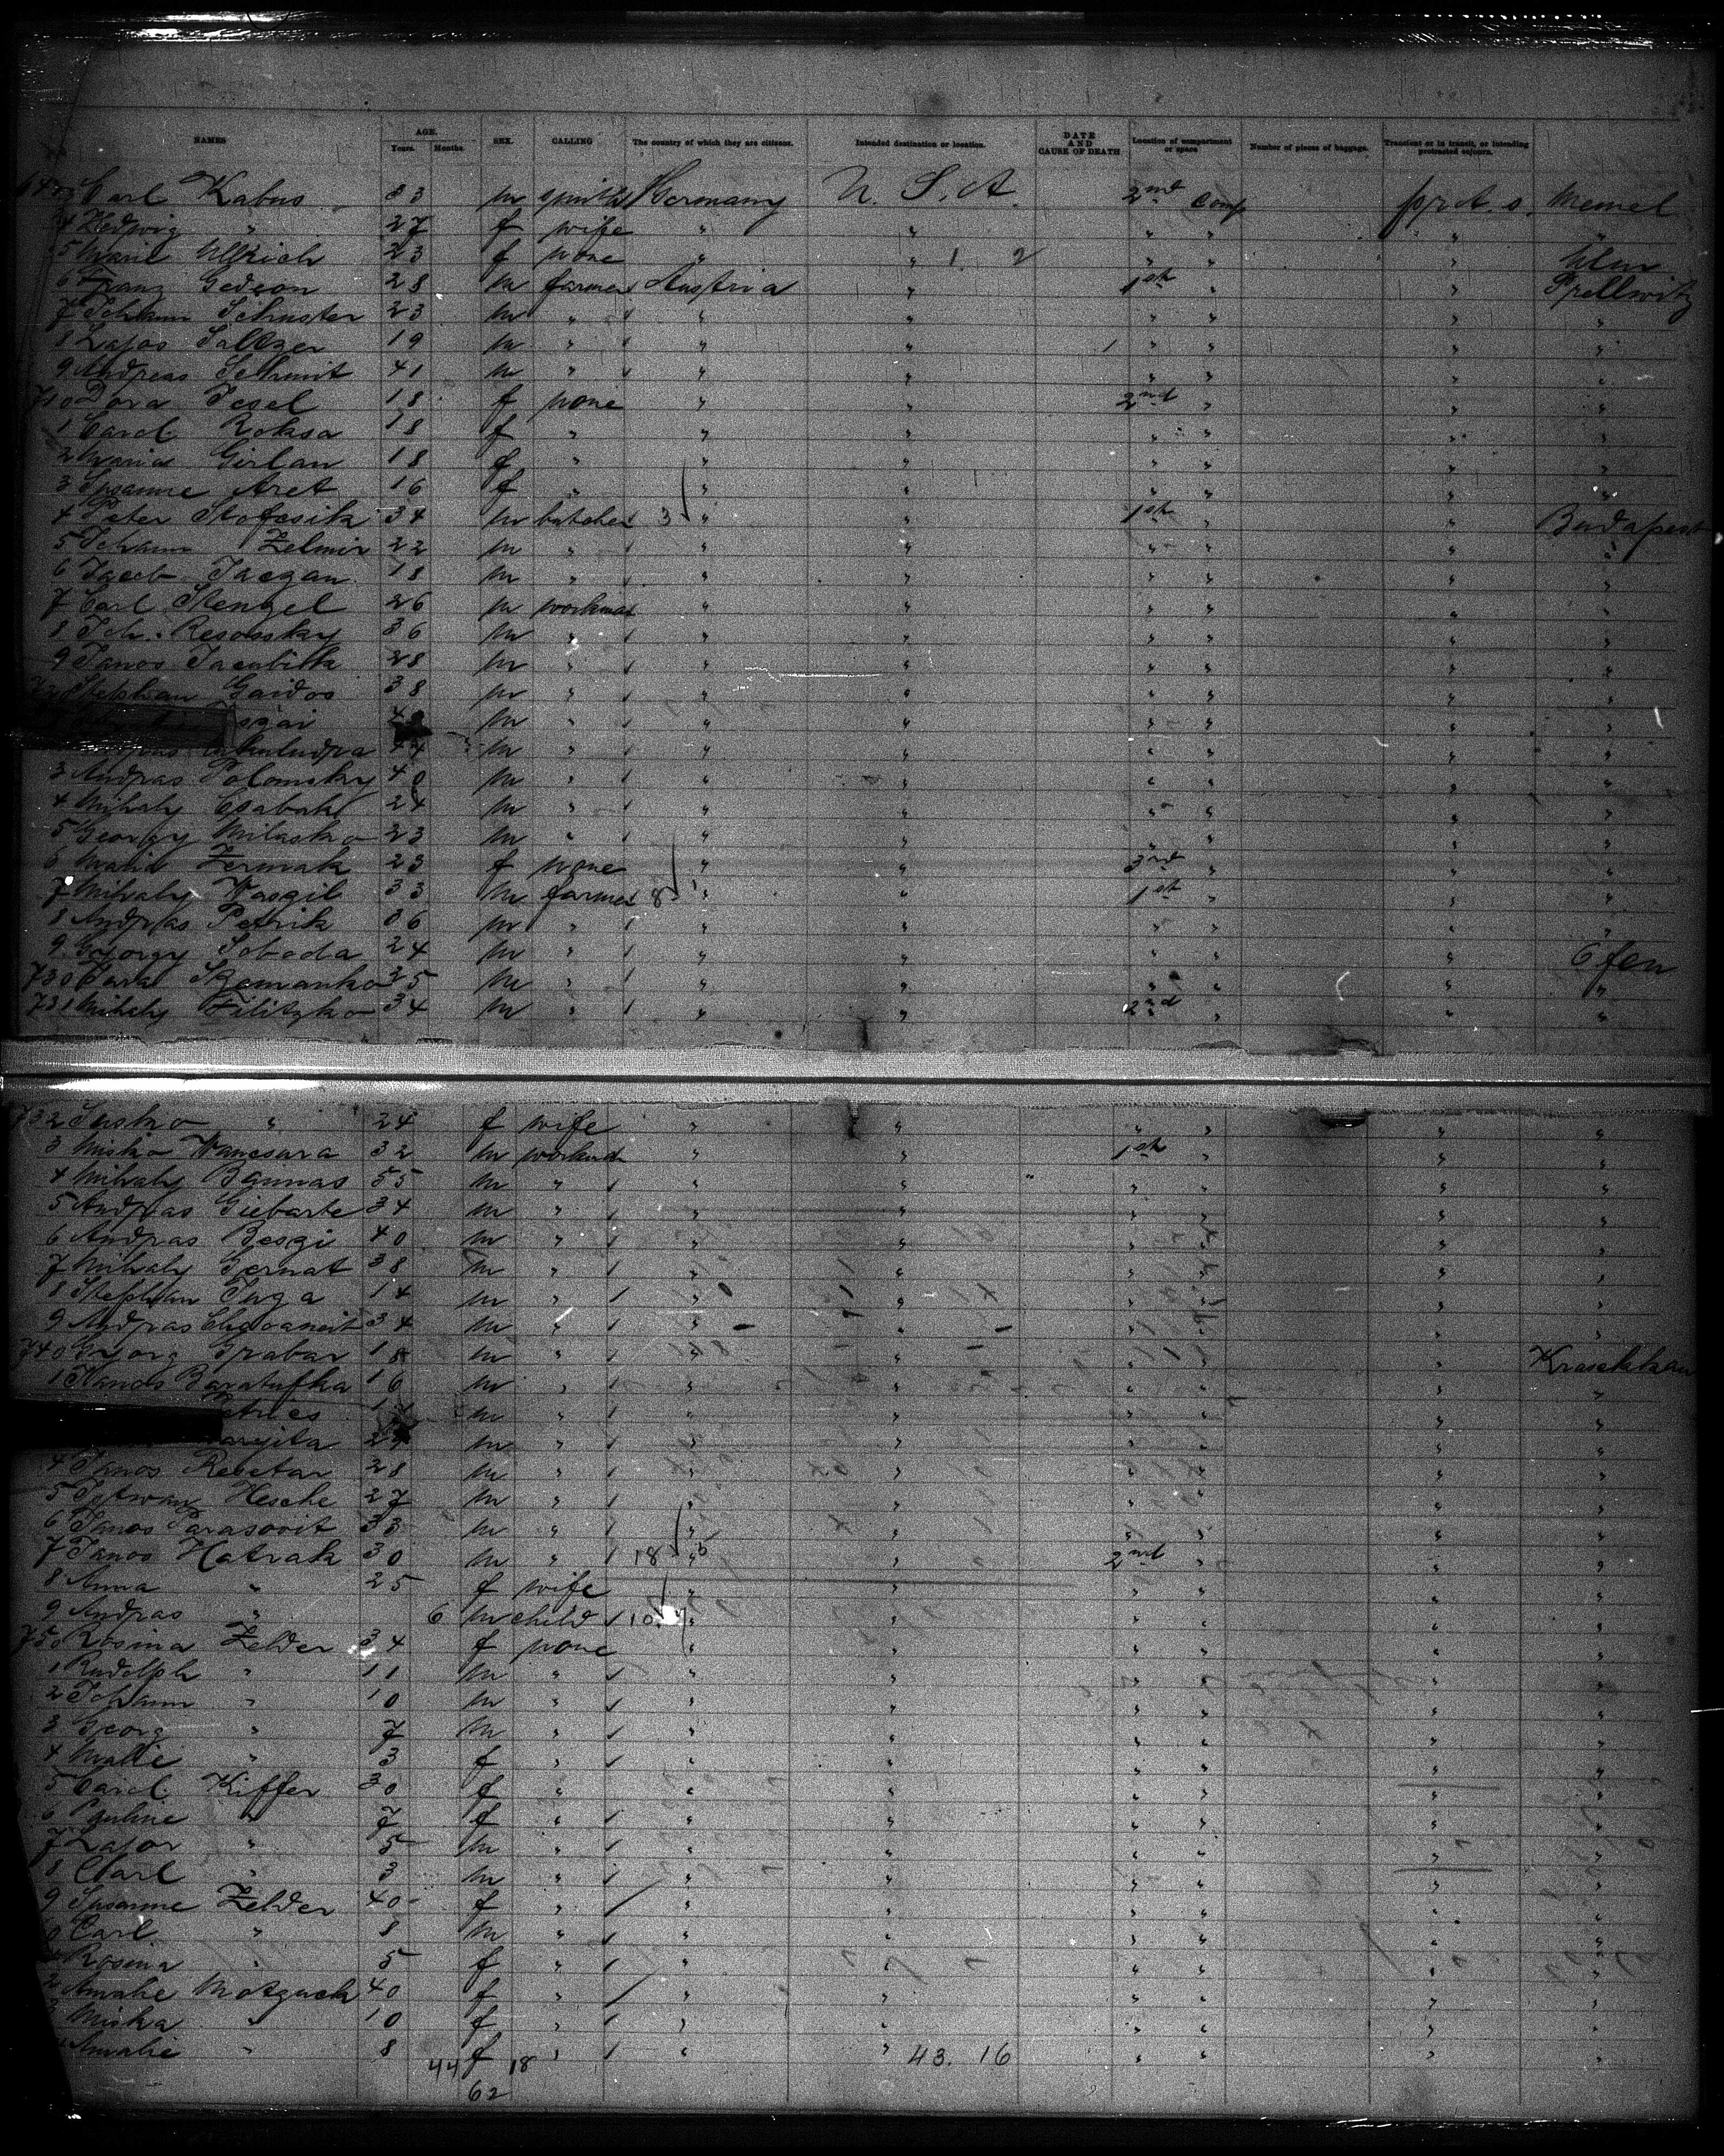 NAMES AGE. Years. Months. SEX. CALLING The country of which they are citizens. Intended destination or location. DATE AND CAUSE OF DEATH Location of compartment or space Number of pieces of baggage. Transient or in transit, or intending protracted sojourn.
Carl Kabus 33 m Germany U. S. A. 2nd Comp prot. s. Memel
4 Hedwig " 27 f wife " " " " " "
5 Marie Ullrich 23 f none " " 1 2 " " " Ulm
6 Franz Gedeon 28 m farmer Austria " 1st " " Prellwitz
7 Johann Schuster 23 m " " " " " " "
8 Lajos Saltzer 19 m " " " 1 " " " "
9 Andreas Schmit 41 m " " " " " " "
710 Dora Tesel 18 f none " " 2nd " " "
1 Carol Roksa 18 f " " " " " " "
2 Maria Girlan 18 f " " " " " " "
3 Susanne Aret 16 f " " " " " " "
4 Peter Stofcsik 34 m butcher 3 " " 1st " " Budapest
5 Johann Zelmir 22 m " " " " " " "
6 Jacob Jaczan 18 m " " " " " " "
7 Carl Stengel 26 m workman " " " " " "
8 Joh. Resossky 36 m " " " " " " "
9 Janos Jacubik 28 m " " " " " " "
720 Stephan Gaidos 38 m " " " " " " "
m " " " " " " "
44 m " " " " " " "
3 Andras Polomsky 40 m " " " " " " "
4 Mihaly Csabak 24 m " " " " " " "
5 Georgy Milasko 23 m " " " " " " "
6 Maria Zermak 23 f none " " 3rd " " "
7 Mihaly Vasgil 33 m farmer 8 " " 1st " " "
8 Andras Petrik 36 m " " " " " " "
9 Gyorgy Soboda 24 m " " " " " " Ofen
730 Szemanko 35 m " " " " " " "
731 Mihaly Filitzko 34 m " " " 2nd " " "
732 Susko " 24 f wife " " " " " "
3 Misko Vanesara 32 m workman " " 1st " " "
4 Mihaly Bannas 55 m " " " " " " "
5 Andras Giebarte 34 m " " " " " " "
6 Andras Besgi 40 m " " " " " " "
7 Mihaly Gernat 38 m " " " " " " "
8 Stephan Juga 14 m " " " " " " "
9 Andras 34 m " " " " " " "
740 Georg Grabar 18 m " " " " " "
1 Janos Baratufka 16 m " " " " " " "
m " " " " " " "
m " " " " " " "
4 Janos Resetar 28 m " " " " " " "
5 Istwan Hesche 27 m " " " " " " "
6 Janos Parasovit 33 m " " " " " " "
7 Janos Hatrak 30 m " 18 " " 2nd " " "
8 Anna " 25 f wife " " " " " "
9 Andras " 6 m child 10 " " " " " "
750 Rosina Zelder 34 f none " " " " " "
1 Rudolph " 11 m " " " " " " "
2 Johann " 10 m " " " " " " "
3 Georg " 7 m " " " " " " "
4 Malie " 3 f " " " " " " "
5 Carol Kiffer 30 f " " " " " " "
6 Paline " 7 f " " " " " " "
7 Lajor " 5 m " " " " " " "
8 Carl " 3 m " " " " " " "
9 Susanne Zelder 40 f " " " " " " "
0 Carl " 8 m " " " " " " "
Rosina " 5 f " " " " " " "
2 Amalie Motzuch 40 f " " " " " " "
3 Miska " 10 f " " " " " " "
Amalie " 8 f " " " " " " "
44 18 43. 16
62